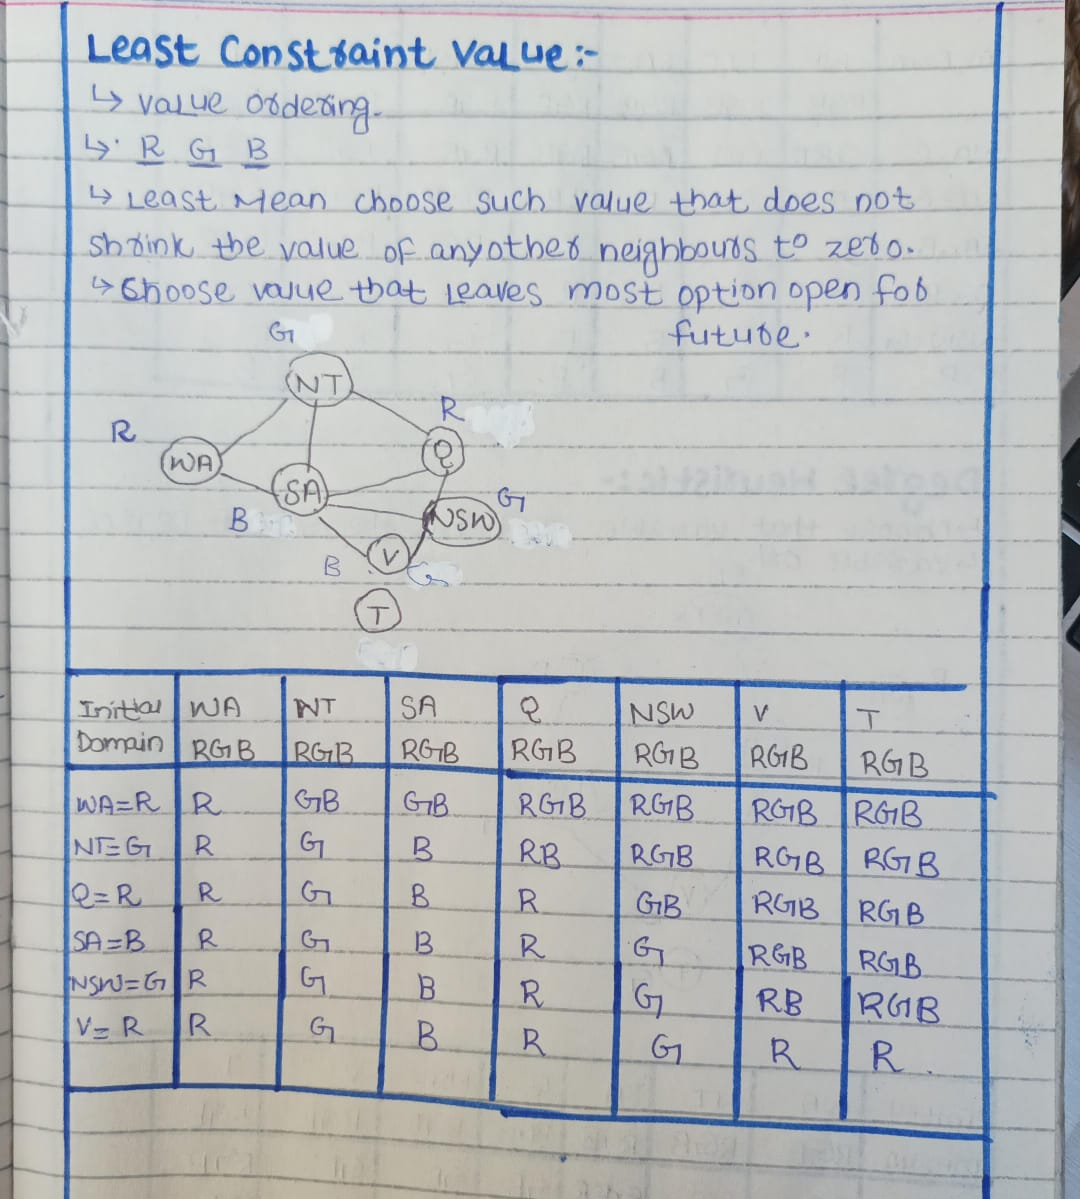 Least Constraint Value :-
↳ value ordering.
↳ R G B
↳ Least Mean choose such value that does not
shrink the value of anyother neighbours to zero.
↳ Choose value that leaves most option open for
future.
G
NT
R
R
WA
Q
SA
G
B
NSW
B
V
G
T
Initial WA NT SA Q NSW V T
Domain RGB RGB RGB RGB RGB RGB RGB
WA=R R GB GB RGB RGB RGB RGB
NT=G R G B RB RGB RGB RGB
Q=R R G B R GB RGB RGB
SA=B R G B R G RGB RGB
NSW=G R G B R G RB RGB
V=R R G B R G R R.